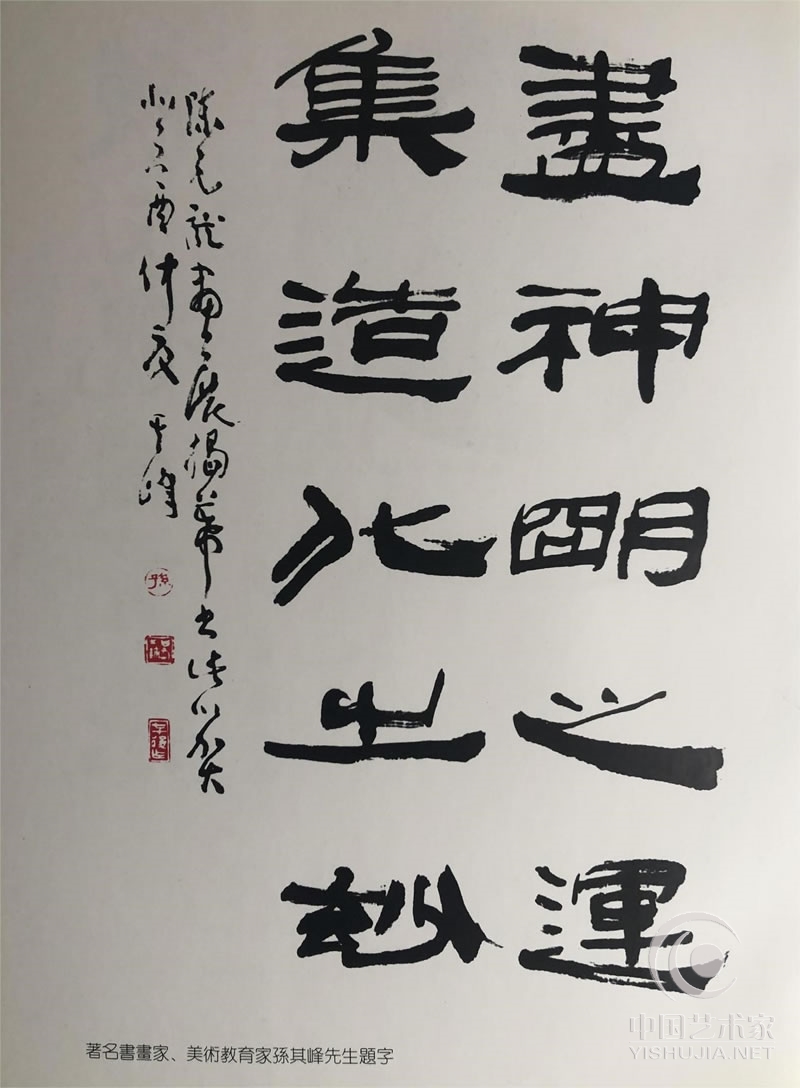 盡神明之運
集造化之玅
陳元龍畫展揭幕書此以賀
酉仲夏 其峰
孫
著名書畫家、美術教育家孫其峰先生題字
中国艺术家
YISHUJIA.NET